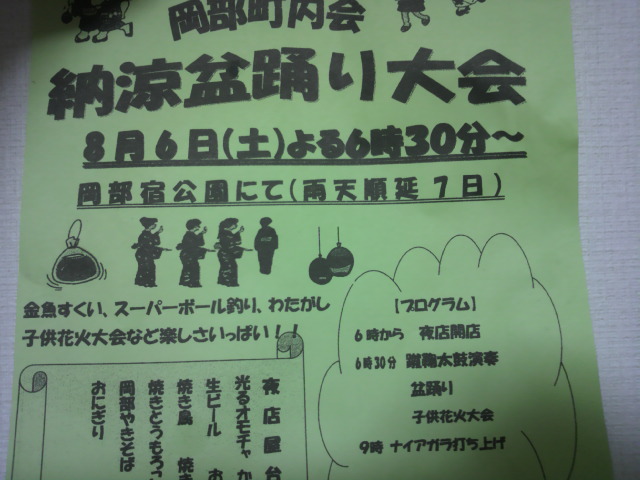 岡部町内会
納涼盆踊り大会
8月6日(土)よる6時30分～
岡部宿公園にて(雨天順延7日)
金魚すくい、スーパーボール釣り、わたがし
子供花火大会など楽しさいっぱい！！
【プログラム】
6時から 夜店開店
6時30分 蹴鞠太鼓演奏
盆踊り
子供花火大会
9時 ナイアガラ打ち上げ
夜店屋台
光るオモチャ か
生ビール お
焼き鳥 焼き
焼きとうもろ
岡部やきそば
おにぎり